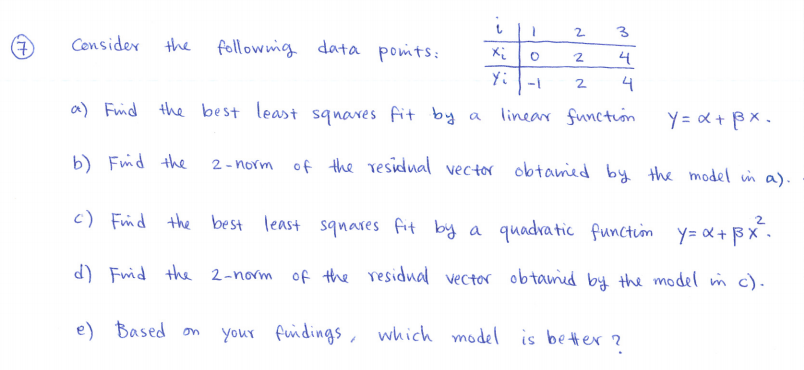 i 1 2 3
⑦ Consider the following data points: xi 0 2 4
yi -1 2 4
a) Find the best least squares fit by a linear function y = α + βx.
b) Find the 2-norm of the residual vector obtained by the model in a).
c) Find the best least squares fit by a quadratic function y = α + βx².
d) Find the 2-norm of the residual vector obtained by the model in c).
e) Based on your findings, which model is better?